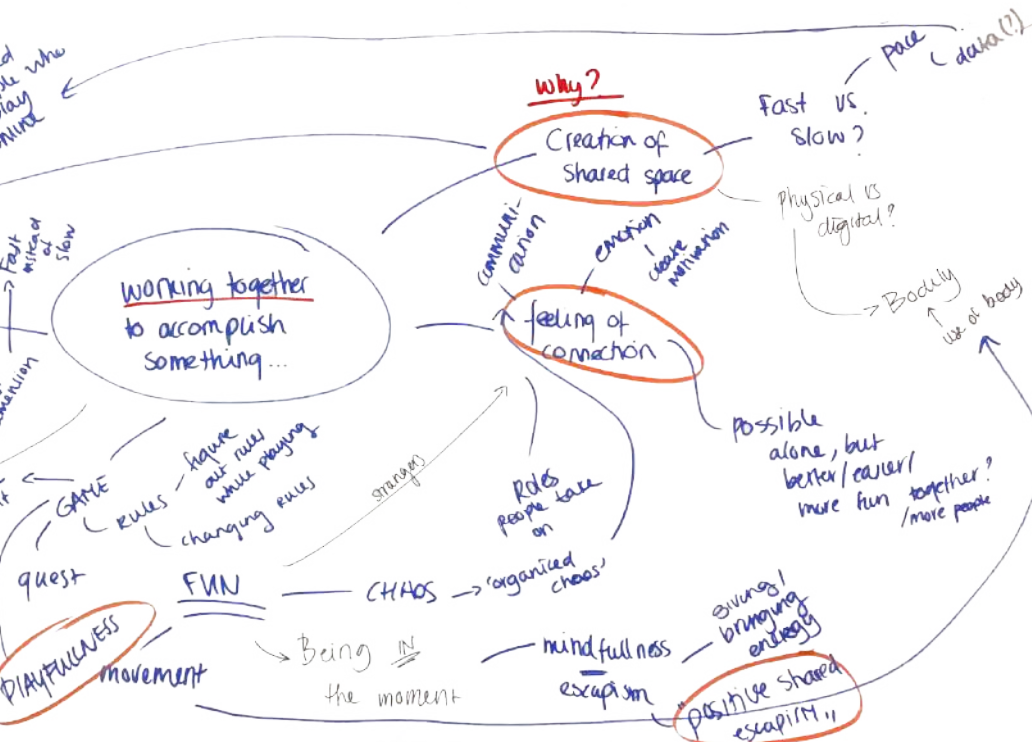 who
Why?
Creation of
Shared space
Fast vs.
Slow?
pace
data(?)
physical vs
digital?
Bodily
use of body
Fast
instead
of
slow
working together
to accomplish
something...
communi-
cation
emotion
create
motivation
feeling of
connection
possible
alone, but
better/easier/
more fun together?
/more people
GAME
rules
figure
out rules
while playing
changing rules
quest
strangers
Roles
people take
on
FUN
CHAOS
'organized
chaos'
PlAYFULLNESS
movement
Being IN
the moment
mindfullness
escapism
giving/
bringing
energy
"positive shared
escapism"